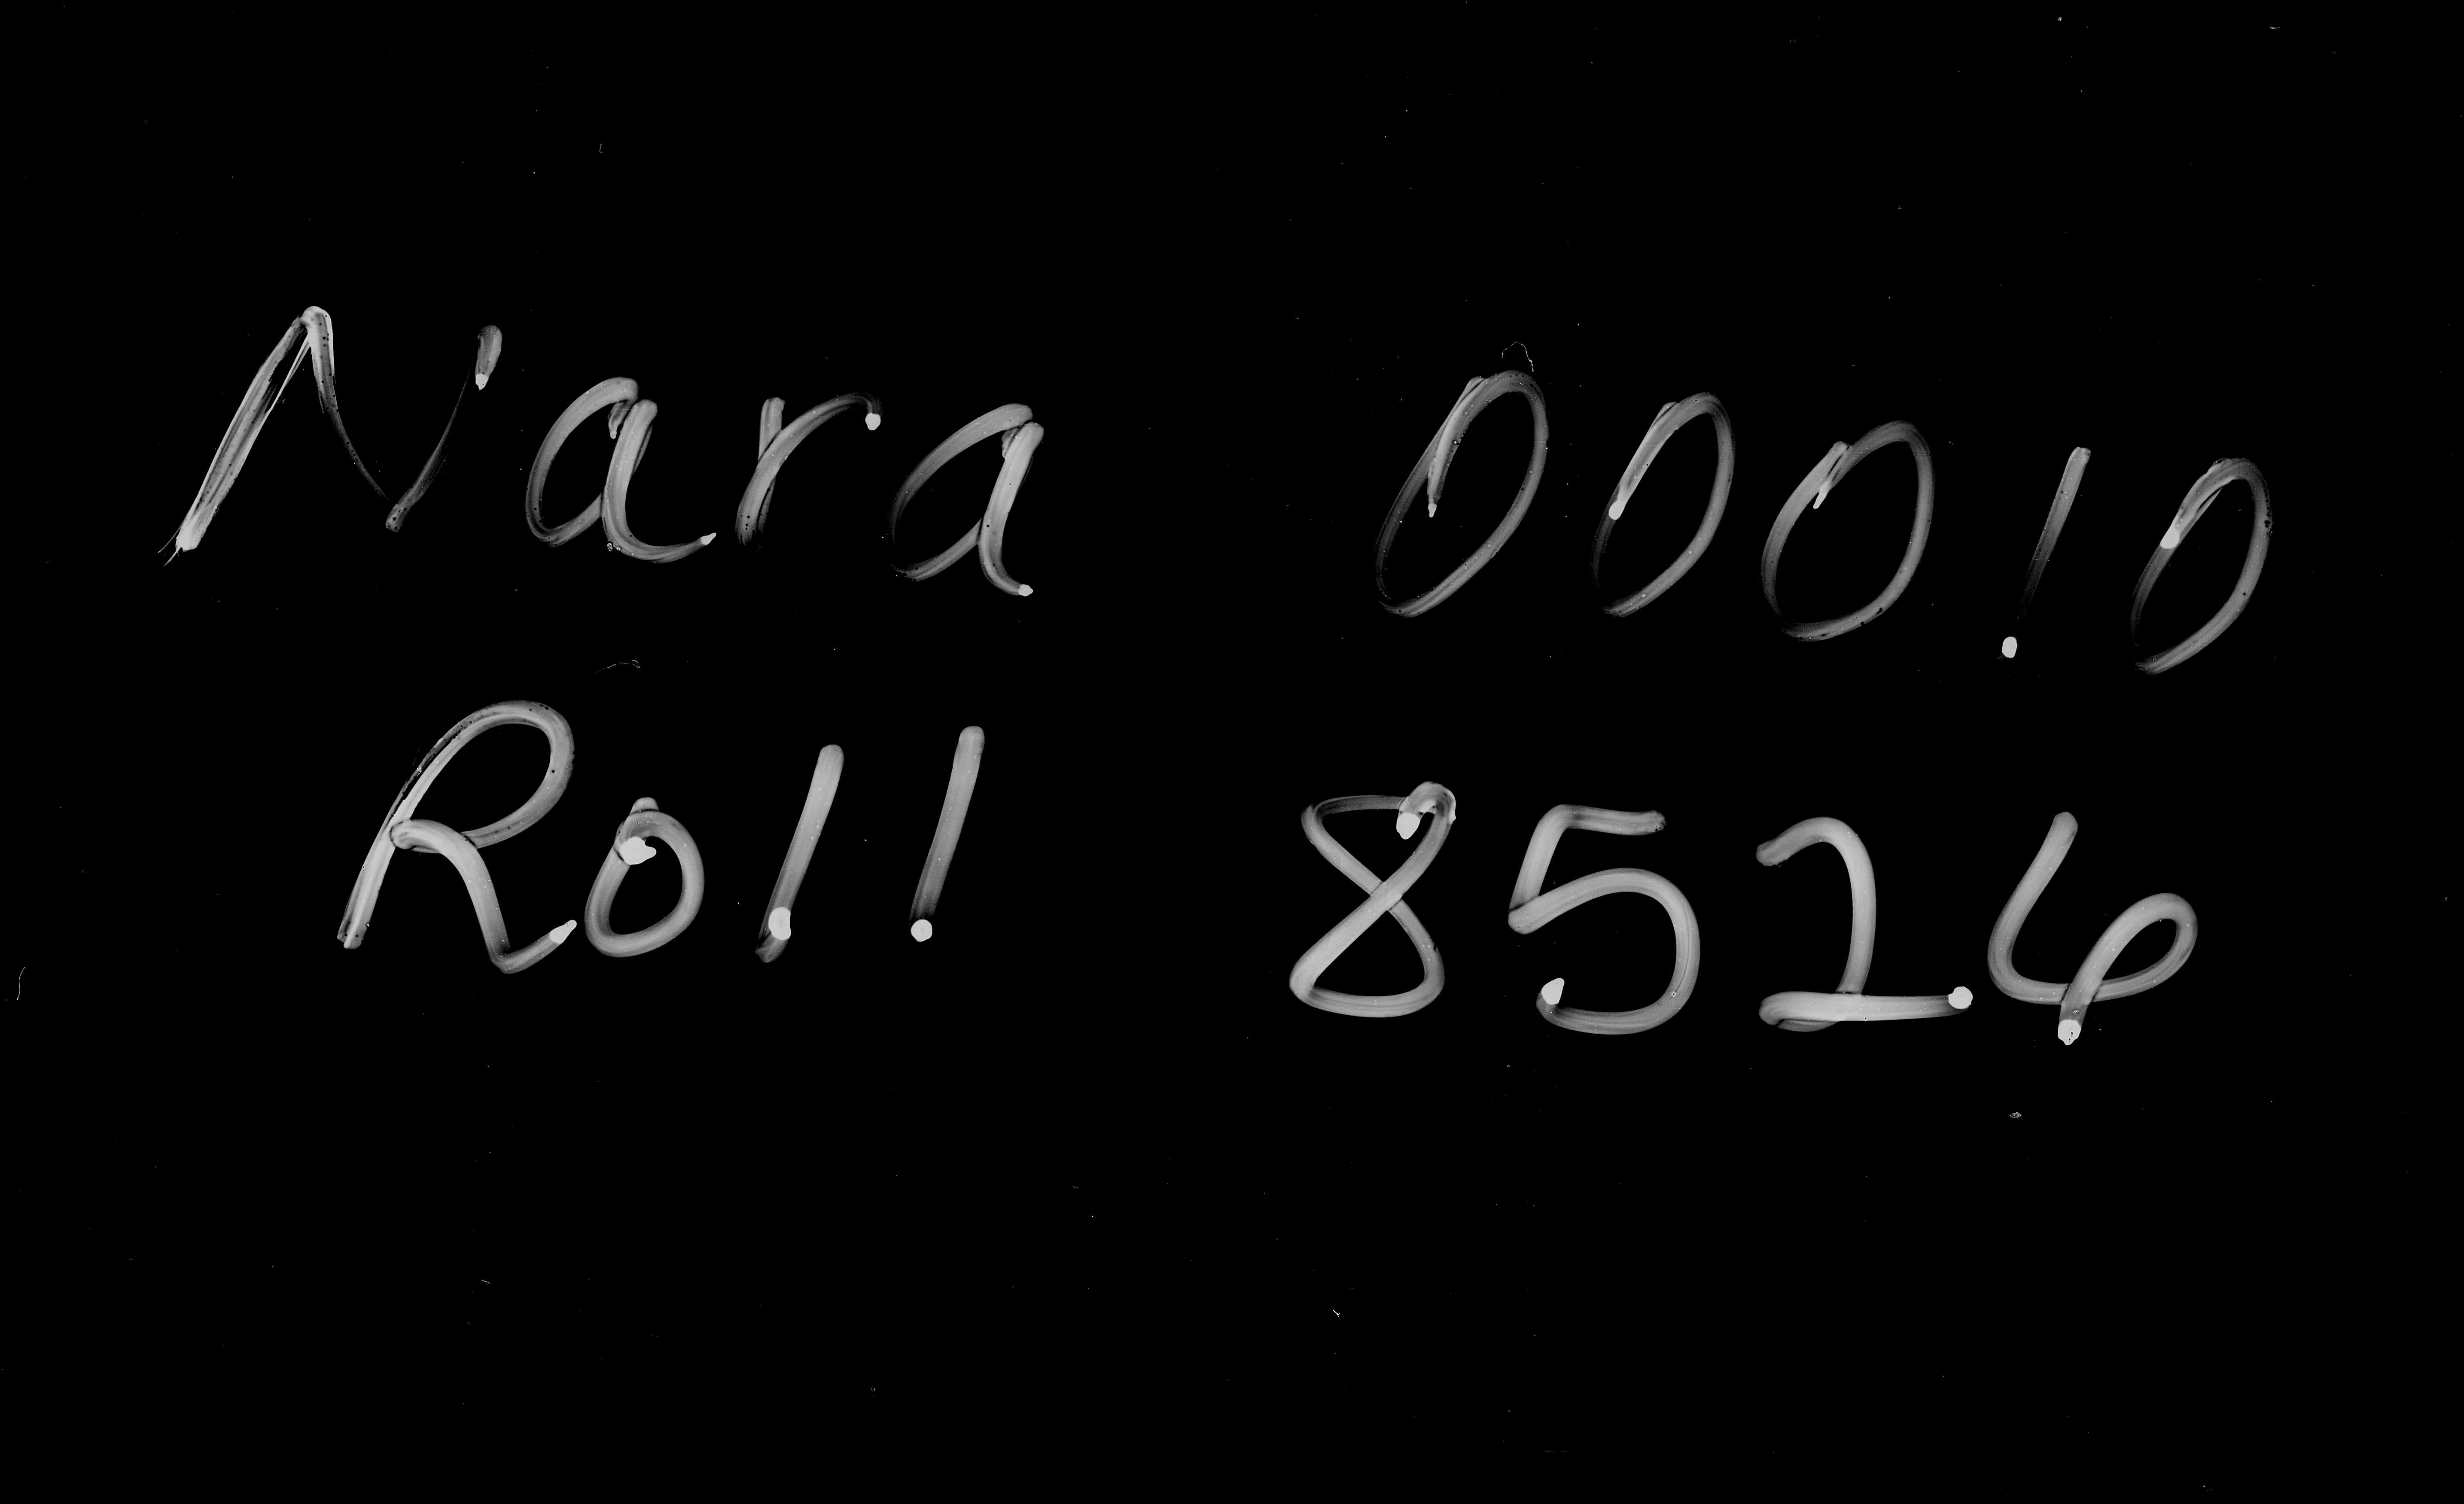 Nara 00010
Roll 8526